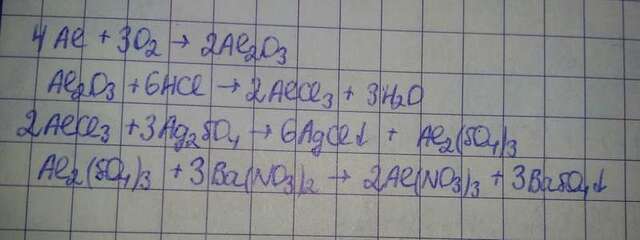 4Al + 3O₂ → 2Al₂O₃
Al₂O₃ + 6HCl → 2AlCl₃ + 3H₂O
2AlCl₃ + 3Ag₂SO₄ → 6AgCl↓ + Al₂(SO₄)₃
Al₂(SO₄)₃ + 3Ba(NO₃)₂ → 2Al(NO₃)₃ + 3BaSO₄↓